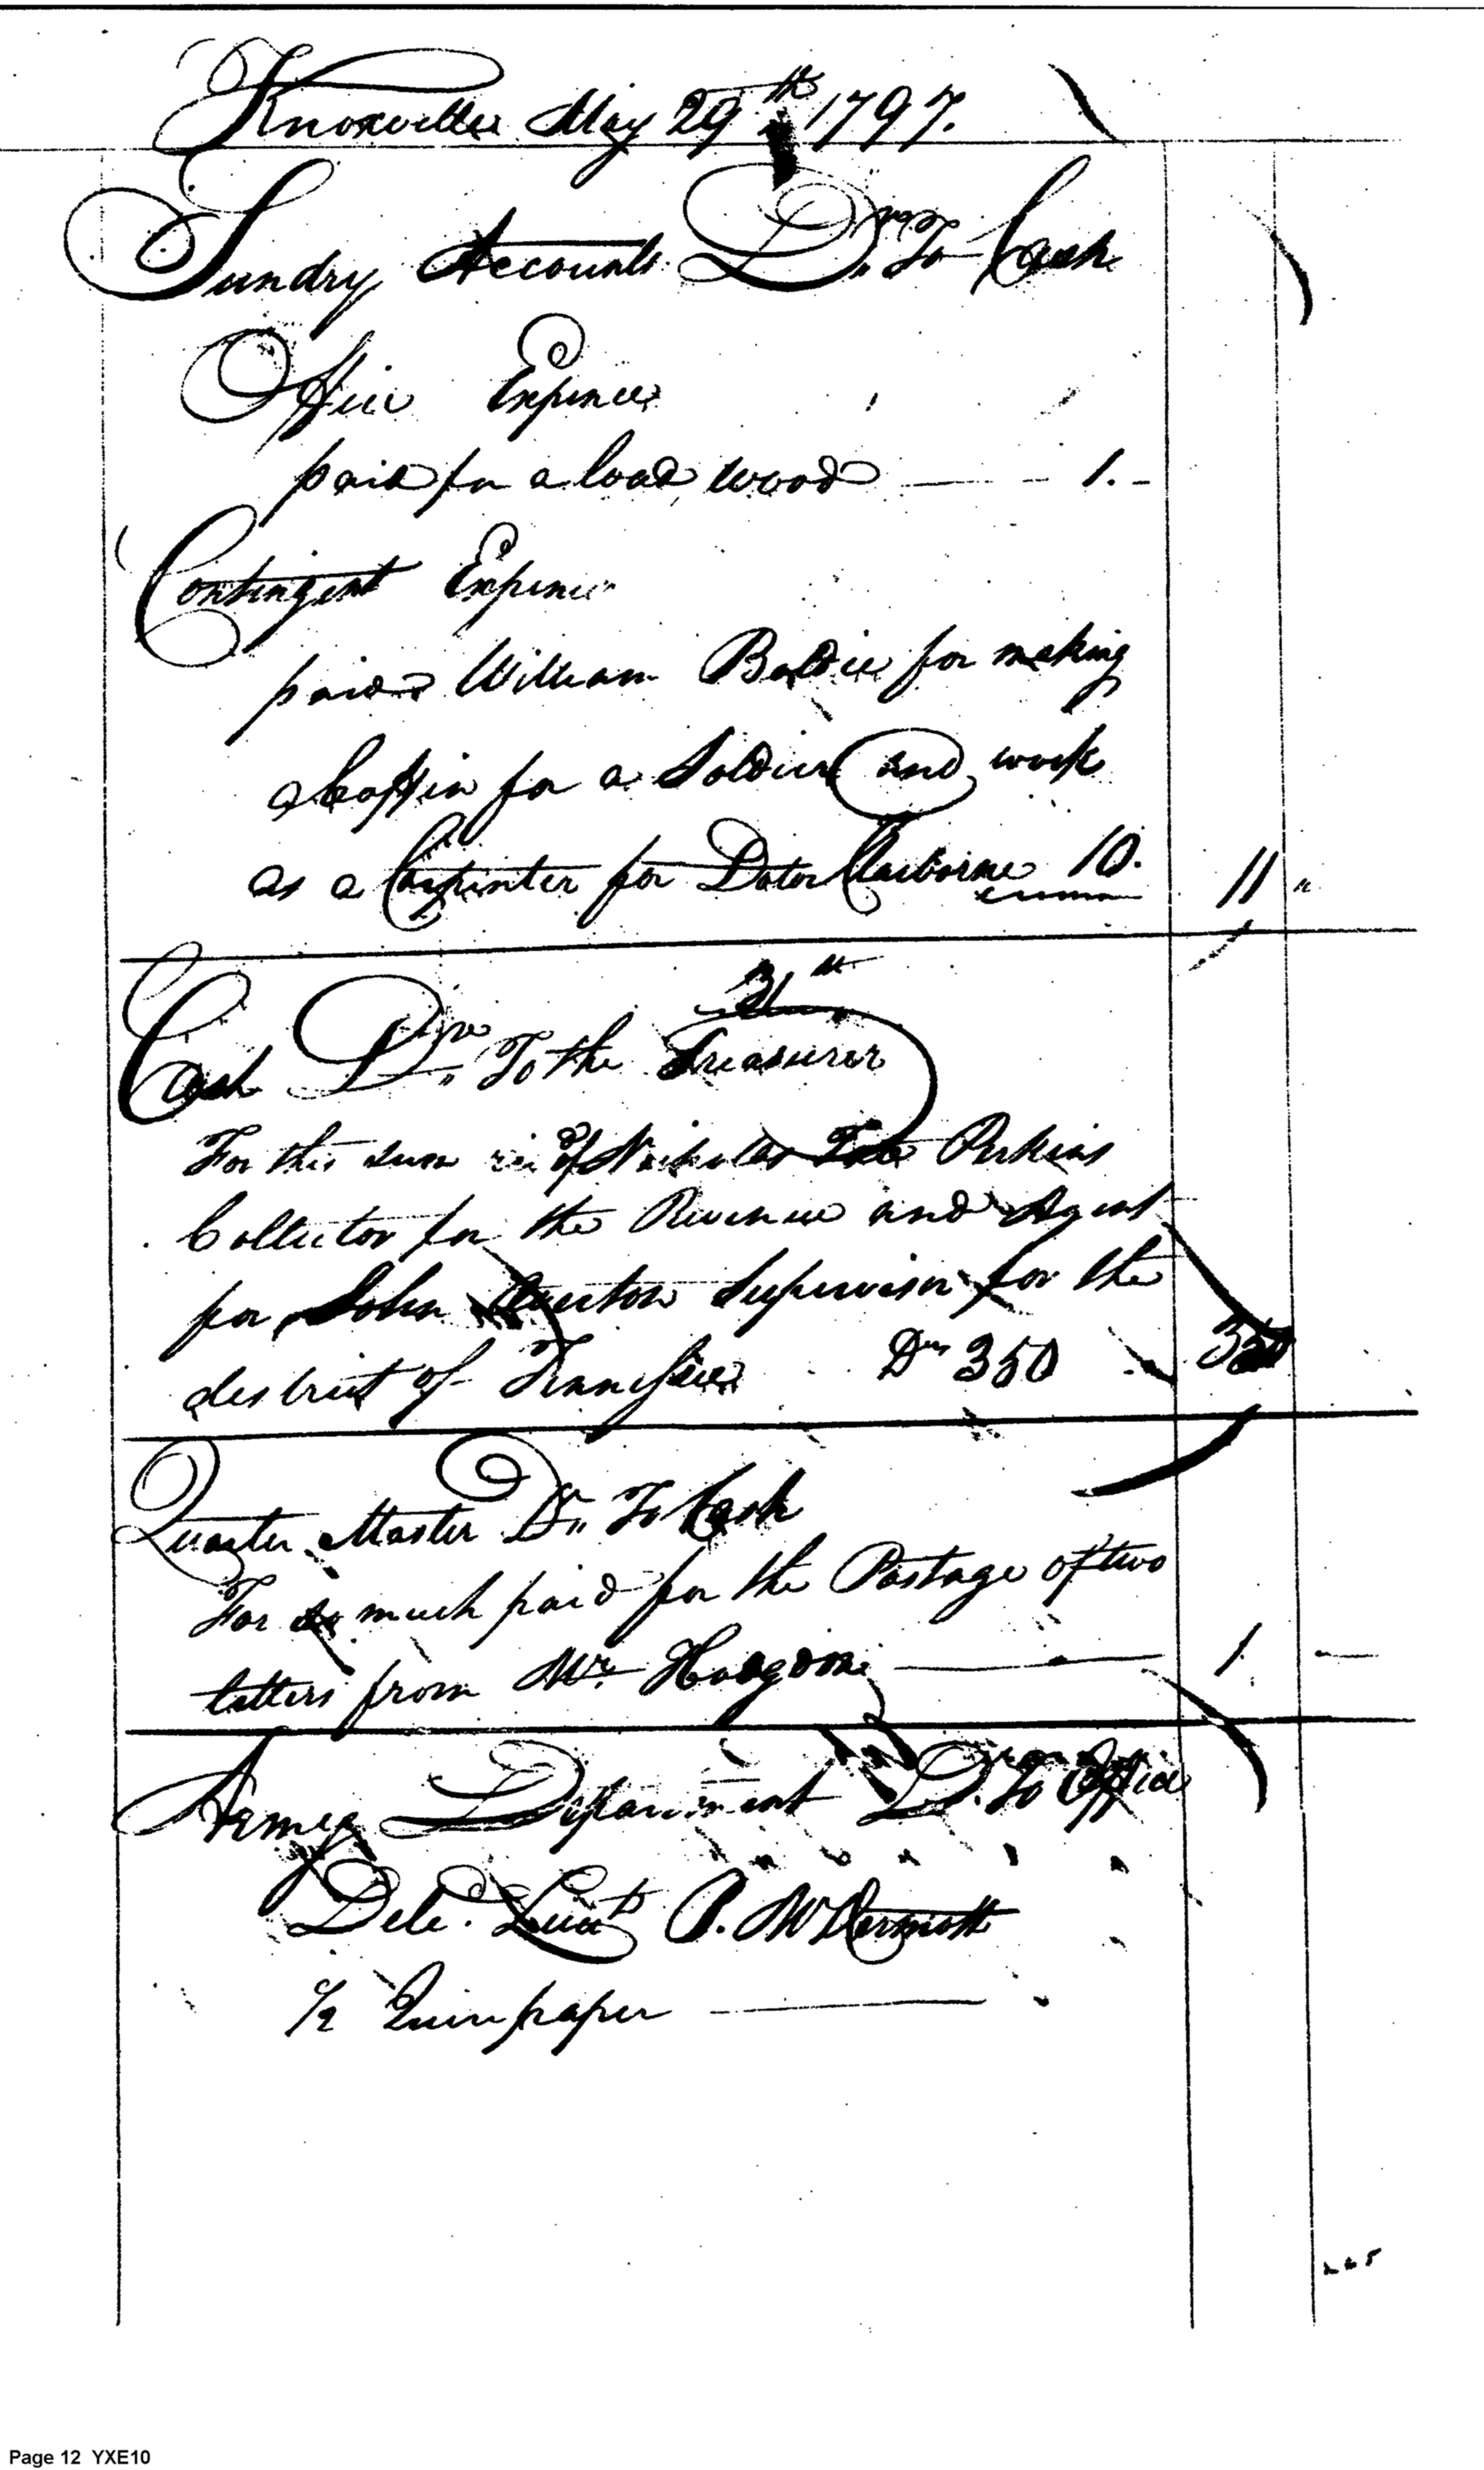 Knoxville May 29th 1797.
Sundry Accounts Drs To Cash
Office Expences
paid for a load wood 1.-
Contingent Expences
paid William for making
a Coffin for a Soldier and work
as a Carpinter for Doctor Claiborne 10. 11 "
31st
Cash Dr. To the Treasurer
For this sum of Nicholas Tate Perkins
Collector for the Revenue and Agent
for John Overton Supervisor for the
district of Tennessee Drs 350 350
Quarter Master Dr. To Cash
For so much paid for the Postage of two
letters from Mr. Hodgdon 1. -
Army Department Dr. To Office
Dele. Lieut P. McDermott
1/2 Quire paper
Page 12 YXE10